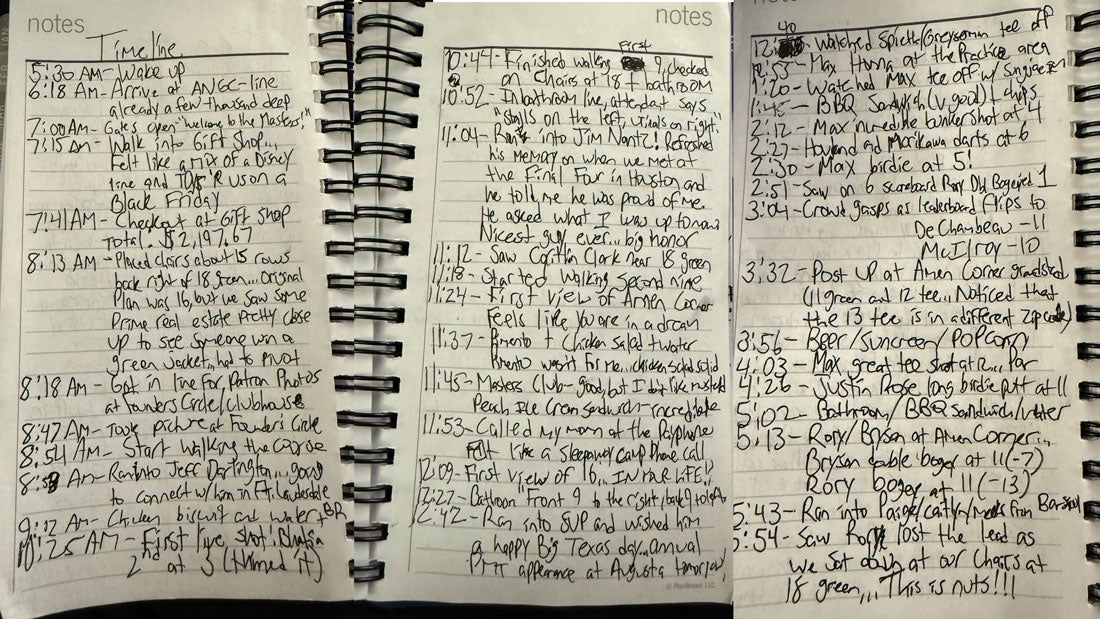 notes
Timeline
5:30 AM- Wake up
6:18 AM- Arrive at ANGC-line
already a few thousand deep
7:00AM- Gates open "welcome to the Masters!"
7:15 AM- Walk into Gift Shop...
Felt like a mix of a Disney
line and TOYS 'R us on a
Black Friday
7:41 AM- Checkout at Gift Shop
Total. $2,197.67
8:13 AM- Placed chairs about 15 rows
back right of 18 green... original
Plan was 16, but we saw some
Prime real estate pretty close
up to see someone win a
green jacket, had to pivot
8:18 AM- Got in line for Patron Photos
at Founders Circle/Clubhouse
8:47 AM- Took picture at Founders Circle
8:54 AM- Start walking the course
AM- Ran into Jeff Darlington... going
to connect w/him in Ft. Lauderdale
AM- Chicken biscuit and water + BR
10:25 AM- First live shot:
2nd at 3 (Hummed it)
notes
10:44- Finished walking First 9, checked
on Chairs at 18 + bathroom
10:52- In bathroom line, attendant says
"Stalls on the left, urinals on right."
11:04- Ran into Jim Nantz! Refreshed
his memory on when we met at
the Final Four in Houston and
he told me he was proud of me.
He asked what I was up to now
Nicest guy ever... big honor
11:12- Saw Caitlin Clark near 18 green
11:18- Started walking Second nine
11:24- First view of Amen Corner
Feels like you are in a dream
11:37- Pimento + Chicken Salad + water
Pimento wasn't for me... chicken salad solid
11:45- Masters Club- good, but I don't like mustard
Peach Ice Cream Sandwich- incredible
11:53- Called my mom at the Payphone
Felt like a sleepaway camp phone call
12:09- First view of 16... IN YOUR LIFE!!
12:27- Bathroom "Front 9 to the right/back 9 to left"
12:42- Ran into SVP and wished him
a happy Big Texas day... annual
PMT appearance at Augusta tomorrow
© PlanAhead, LLC
12:40- Watched Spieth/Greyserman tee off
12:53- Max Homa at the Practice area
1:20- Watched Max tee off w/
1:45- BBQ Sandwich (v. good) + chips
2:12- Max incredible bunker shot at 4
2:27- Hovland and Morikawa darts at 6
2:30- Max birdie at 5!
2:51- Saw on 6 scoreboard Rory Dbl Bogeyed 1
3:04- Crowd gasps as leaderboard flips to
DeChambeau -11
McIlroy -10
3:32- Post up at Amen Corner grandstand
(11 green and 12 tee... Noticed that
the 13 tee is in a different zip code)
3:56- Beer/Suncreen/Popcorn
4:03- Max great tee shot at 12... par
4:26- Justin Rose long birdie putt at 11
5:02- Bathroom/BBQ sandwich/water
5:13- Rory/Bryson at Amen Corner...
Bryson double bogey at 11 (-7)
Rory bogey at 11 (-13)
5:43- Ran into Paige/Caitlyn/Meeks from Barstool
5:54- Saw Rory lost the lead as
we sat down at our Chairs at
18 green... This is nuts!!!